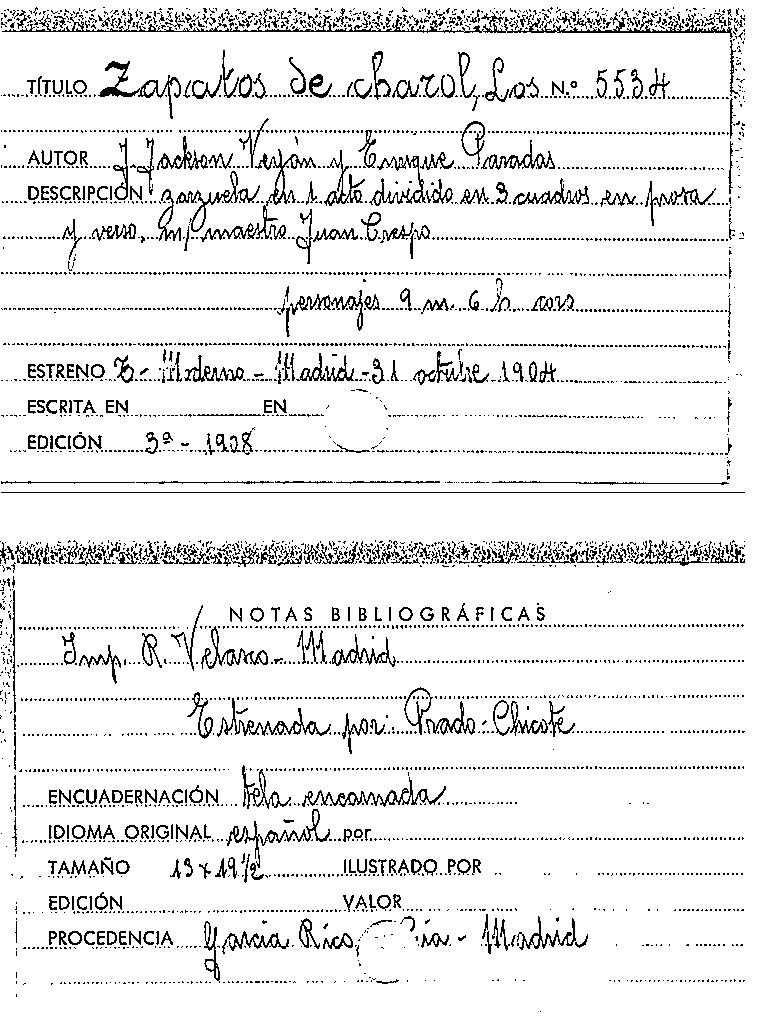 TÍTULO Zapatos de charol, Los N.º 5534
AUTOR J. Jackson Veyán y Enrique Paradas
DESCRIPCIÓN zarzuela en 1 acto dividido en 3 cuadros en prosa
y verso, m/ maestro Juan Crespo
personajes 9 m. 6 h. coro
ESTRENO T- Moderno - Madrid - 31 octubre 1904
ESCRITA EN EN
EDICIÓN 3ª - 1908
NOTAS BIBLIOGRÁFICAS
Imp. R. Velasco - Madrid
Estrenada por: Prado - Chicote
ENCUADERNACIÓN tela encarnada
IDIOMA ORIGINAL español por
TAMAÑO 13 x 19 ½ ILUSTRADO POR
EDICIÓN VALOR
PROCEDENCIA Garcia Rico - Madrid